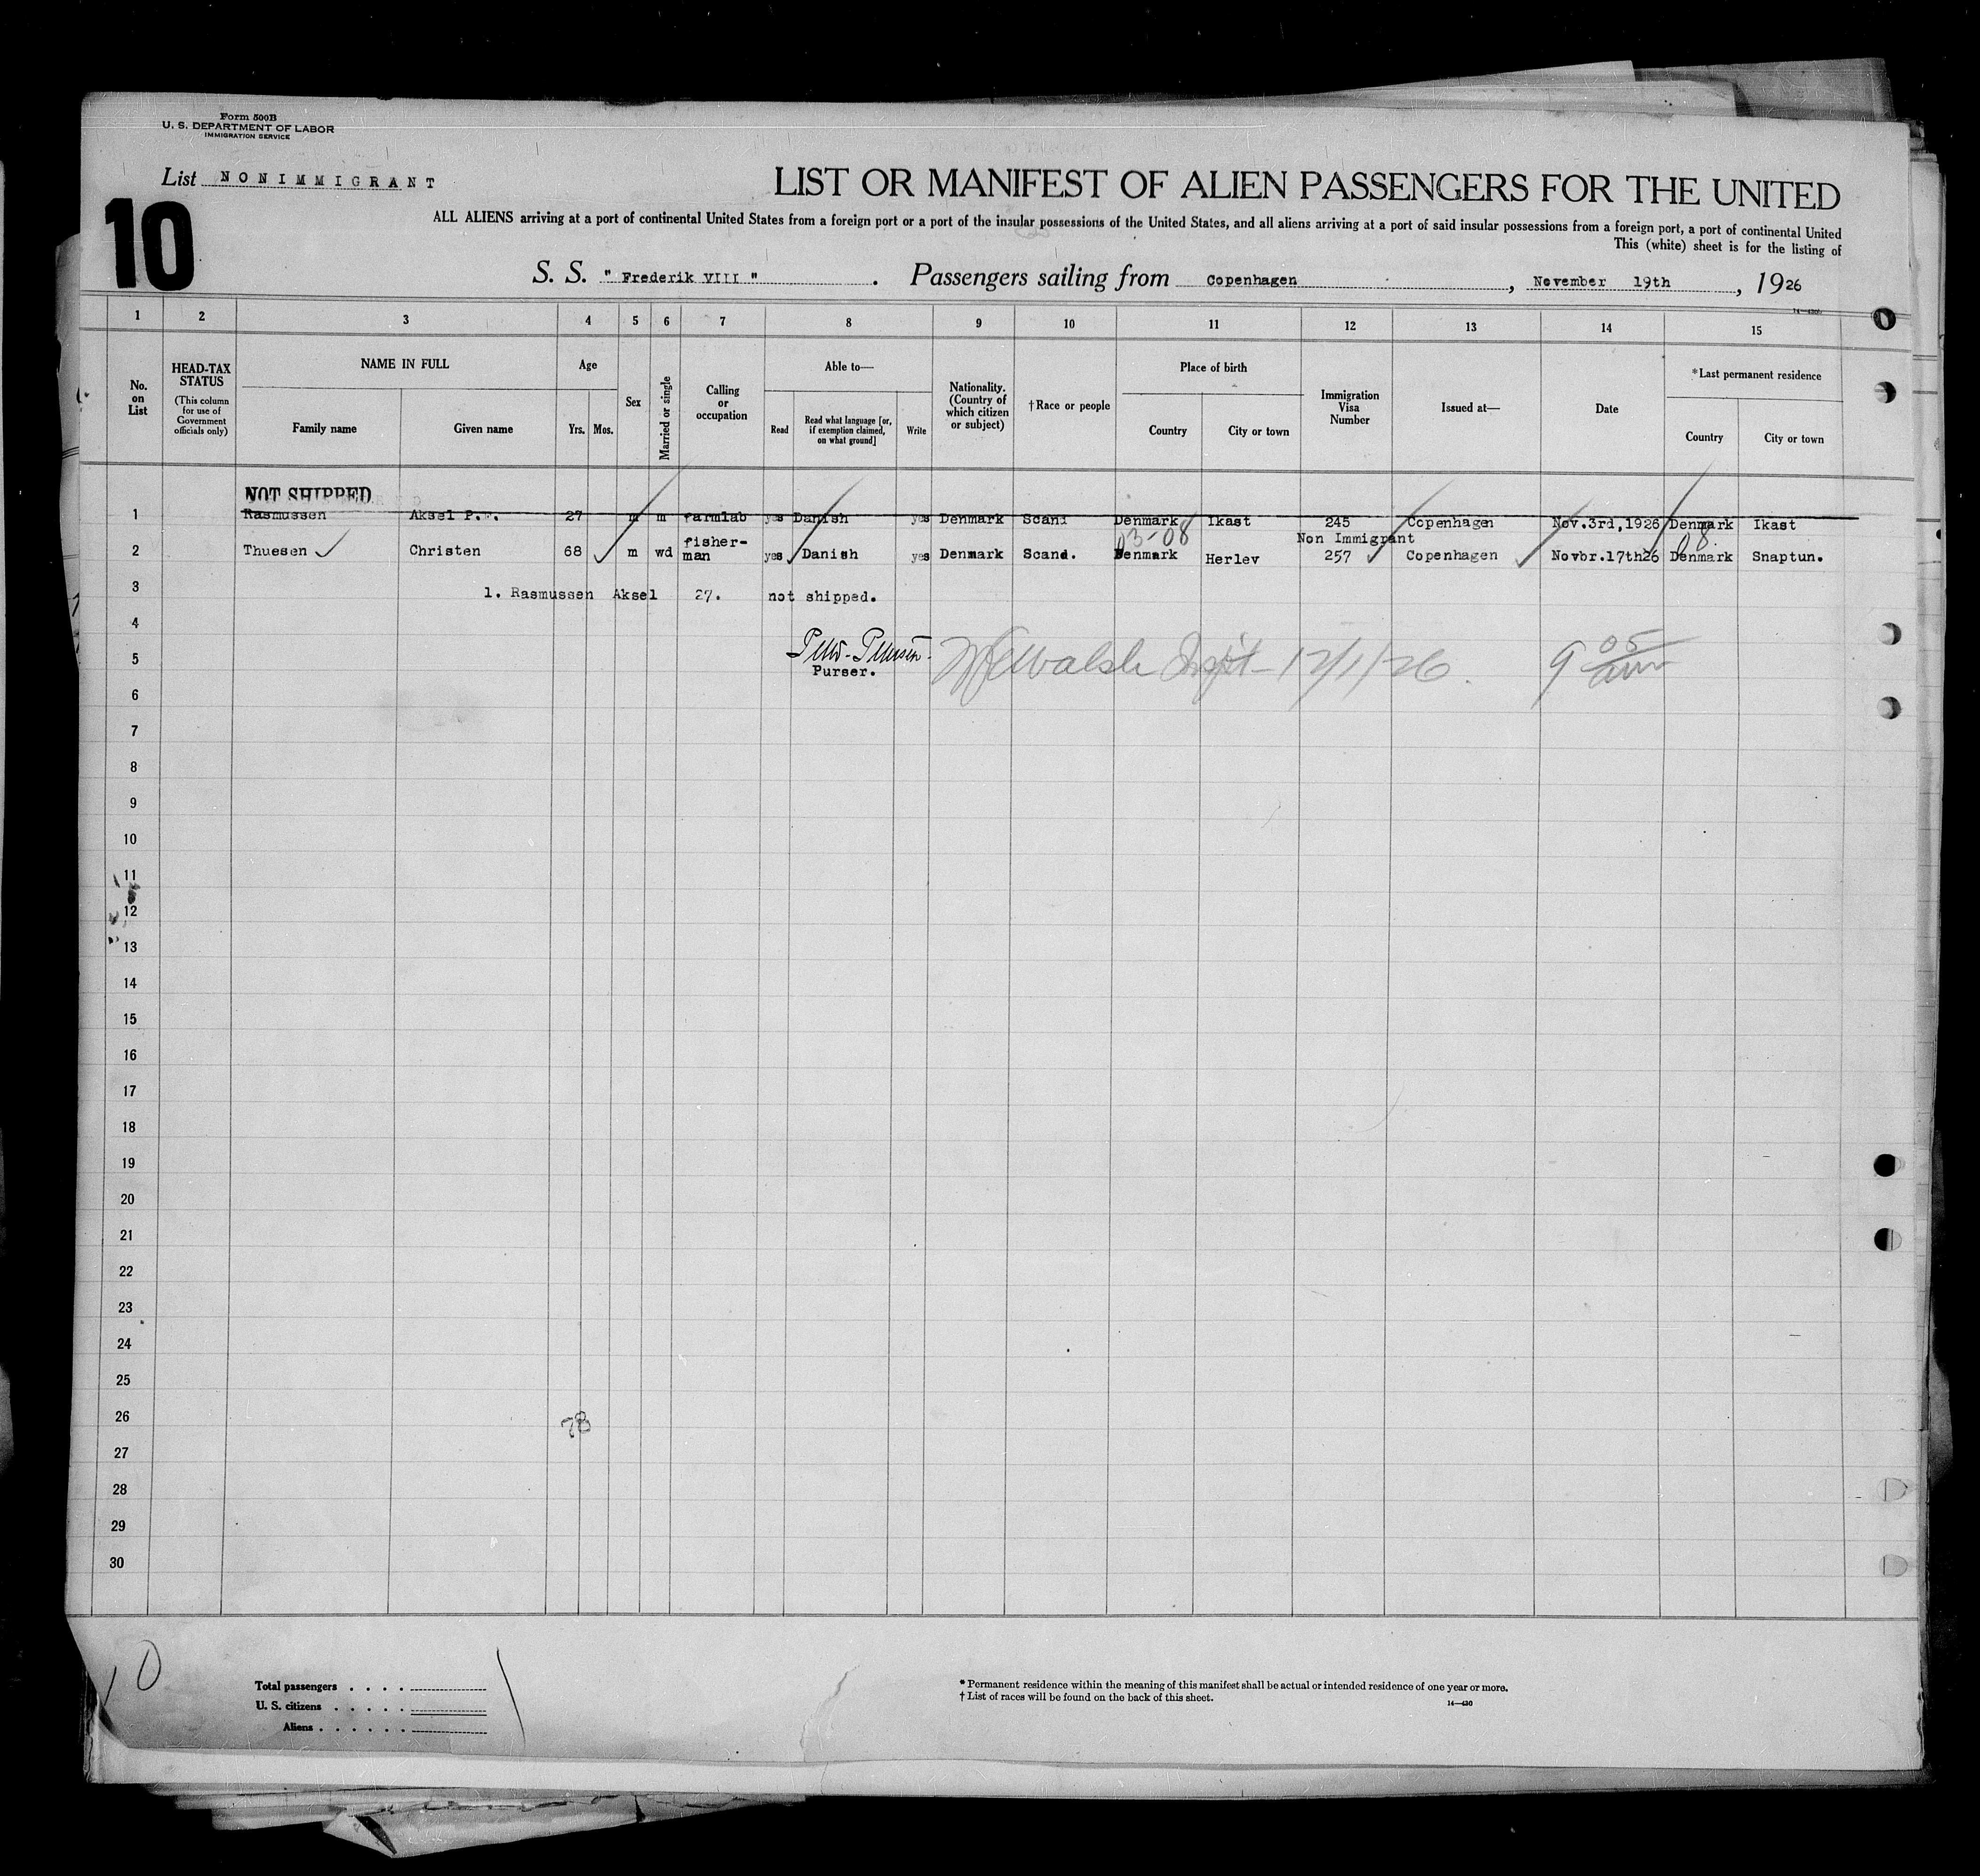 Form 500B
U. S. DEPARTMENT OF LABOR
IMMIGRATION SERVICE
List NONIMMIGRANT
10
LIST OR MANIFEST OF ALIEN PASSENGERS FOR THE UNITED
ALL ALIENS arriving at a port of continental United States from a foreign port or a port of the insular possessions of the United States, and all aliens arriving at a port of said insular possessions from a foreign port, a port of continental United
This (white) sheet is for the listing of
S. S. " Frederik VIII " . Passengers sailing from Copenhagen , November 19th , 1926
1 2 3 4 5 6 7 8 9 10 11 12 13 14 15
No. on List
HEAD-TAX STATUS
(This column for use of Government officials only)
NAME IN FULL
Family name
Given name
Age
Yrs. Mos.
Sex
Married or single
Calling or occupation
Able to—
Read
Read what language [or, if exemption claimed, on what ground]
Write
Nationality. (Country of which citizen or subject)
†Race or people
Place of birth
Country
City or town
Immigration Visa Number
Issued at—
Date
*Last permanent residence
Country
City or town
NOT SHIPPED
1 Rasmussen Aksel P. 27 m m farmlab yes Danish yes Denmark Scand Denmark Ikast 245 Copenhagen Nov.3rd,1926 Denmark Ikast
03-08 Non Immigrant 08
2 Thuesen Christen 68 m wd fisher-man yes Danish yes Denmark Scand. Denmark Herlev 257 Copenhagen Novbr.17th26 Denmark Snaptun.
3 1. Rasmussen Aksel 27. not shipped.
4
5 Walsh Inspt - 12/1/26. 9 05 am
Purser.
6
7
8
9
10
11
12
13
14
15
16
17
18
19
20
21
22
23
24
25
26 78
27
28
29
30
10
Total passengers
U. S. citizens
Aliens
* Permanent residence within the meaning of this manifest shall be actual or intended residence of one year or more.
† List of races will be found on the back of this sheet.
14—430